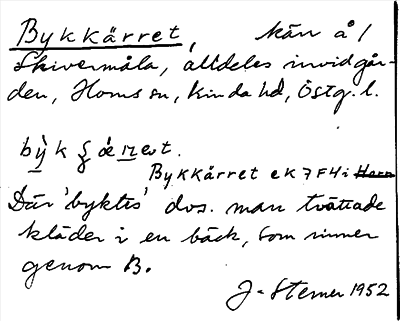 Bykkärret, kärr å /
Skivermåla, alldeles invid går-
den, Horns sn, Kinda hd, Östg. l.
Bykkärret ek 7F4i Horn
Där 'byktes' dvs. man tvättade
kläder i en bäck, som rinner
genom B.
J. Sterner 1952